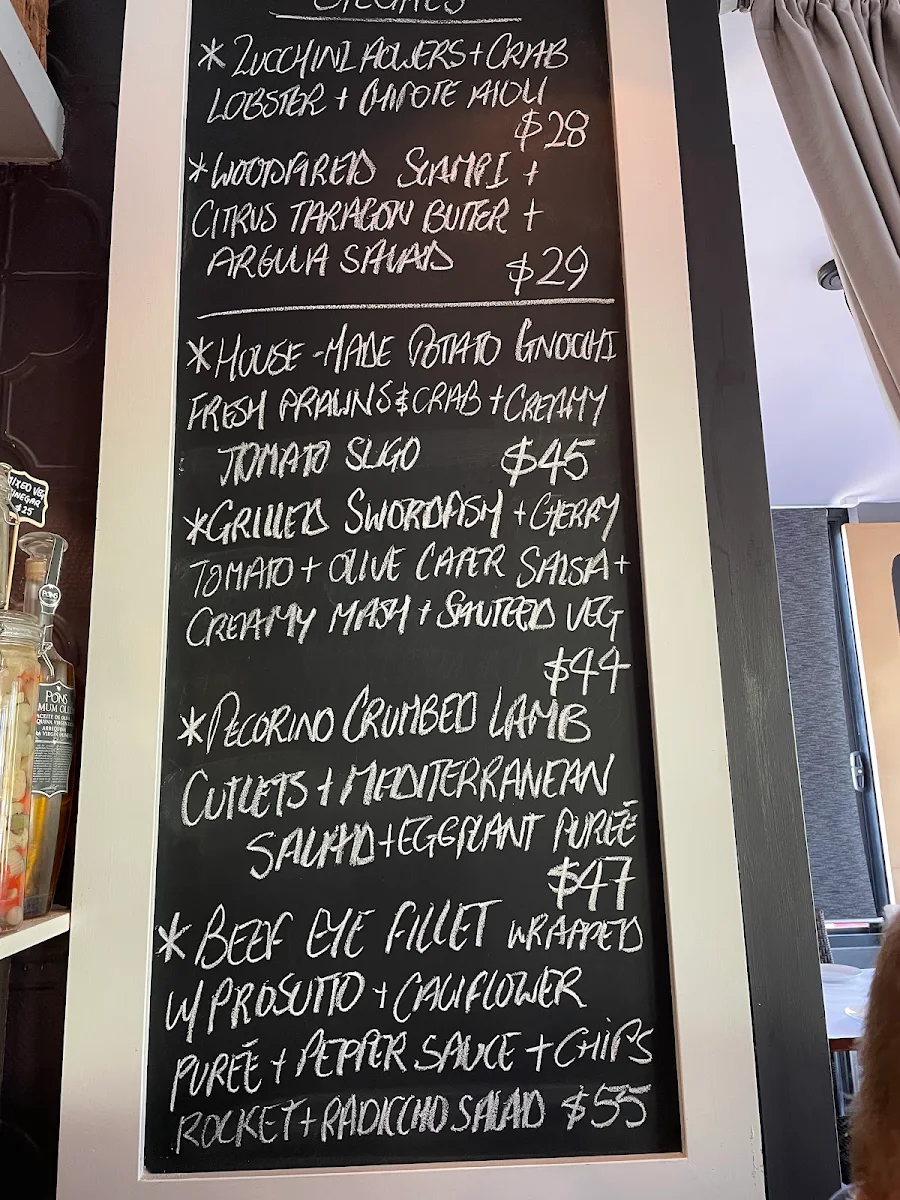 SPECIALS
* ZUCCHINI FLOWERS + CRAB
LOBSTER + CHIPOTE AIOLI
$28
* WOODFIRED SCAMPI +
CITRUS TARAGON BUTTER +
ARGULA SALAD $29
* HOUSE-MADE POTATO GNOCCHI
FRESH PRAWNS & CRAB + CREAMY
TOMATO SUGO $45
* GRILLED SWORDFISH + CHERRY
TOMATO + OLIVE CAPER SALSA +
CREAMY MASH + SAUTEED VEG
$44
* PECORINO CRUMBED LAMB
CUTLETS + MEDITERRANEAN
SALAD + EGGPLANT PUREÉ
$47
* BEEF EYE FILLET WRAPPED
W/ PROSUTTO + CAULIFLOWER
PUREÉ + PEPPER SAUCE + CHIPS
ROCKET + RADICCHIO SALAD $55
MIXED VEG
VINEGAR
$25
PONS
PONS